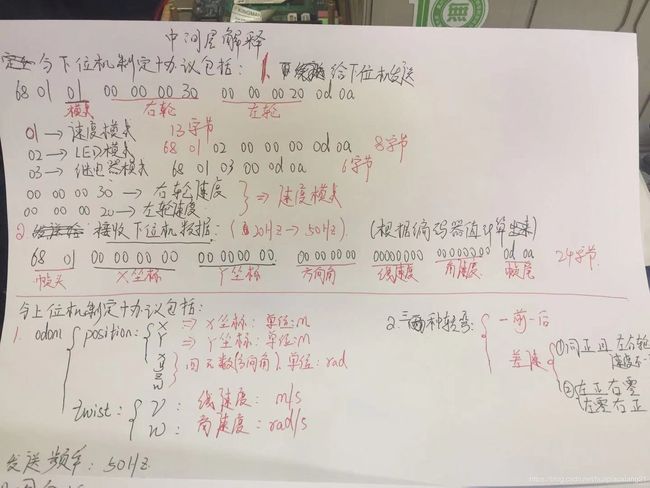 中间层解释
与下位机制定协议包括： 1. 给下位机发送
68 01 01 00 00 00 30 00 00 00 20 0d 0a
模式 右轮 左轮
01→速度模式 13字节
02→LED模式 68 01 02 00 00 00 0d 0a 8字节
03→继电器模式 68 01 03 00 0d 0a 6字节
00 00 00 30 → 右轮速度
00 00 00 20 → 左轮速度 } ⇒ 速度模式
2. 接收下位机数据：(50Hz) (根据编码器值计算出来)
68 01 00 00 00 00 00 00 00 00 00 00 00 00 00000000 00000000 0d 0a 24字节
帧头 X坐标 Y坐标 方向角 线速度 角速度 帧尾
与上位机制定协议包括：
1. odom position: X ⇒ X坐标：单位:m
Y ⇒ Y坐标：单位:m
x y z w } 四元数(方向角)、单位：rad
twist: V: 线速度： m/s
W: 角速度：rad/s
2. 两种转弯：
一前一后
差速
①同正 左右轮速度不一
②左正右零
左零右正
发送频率：50Hz